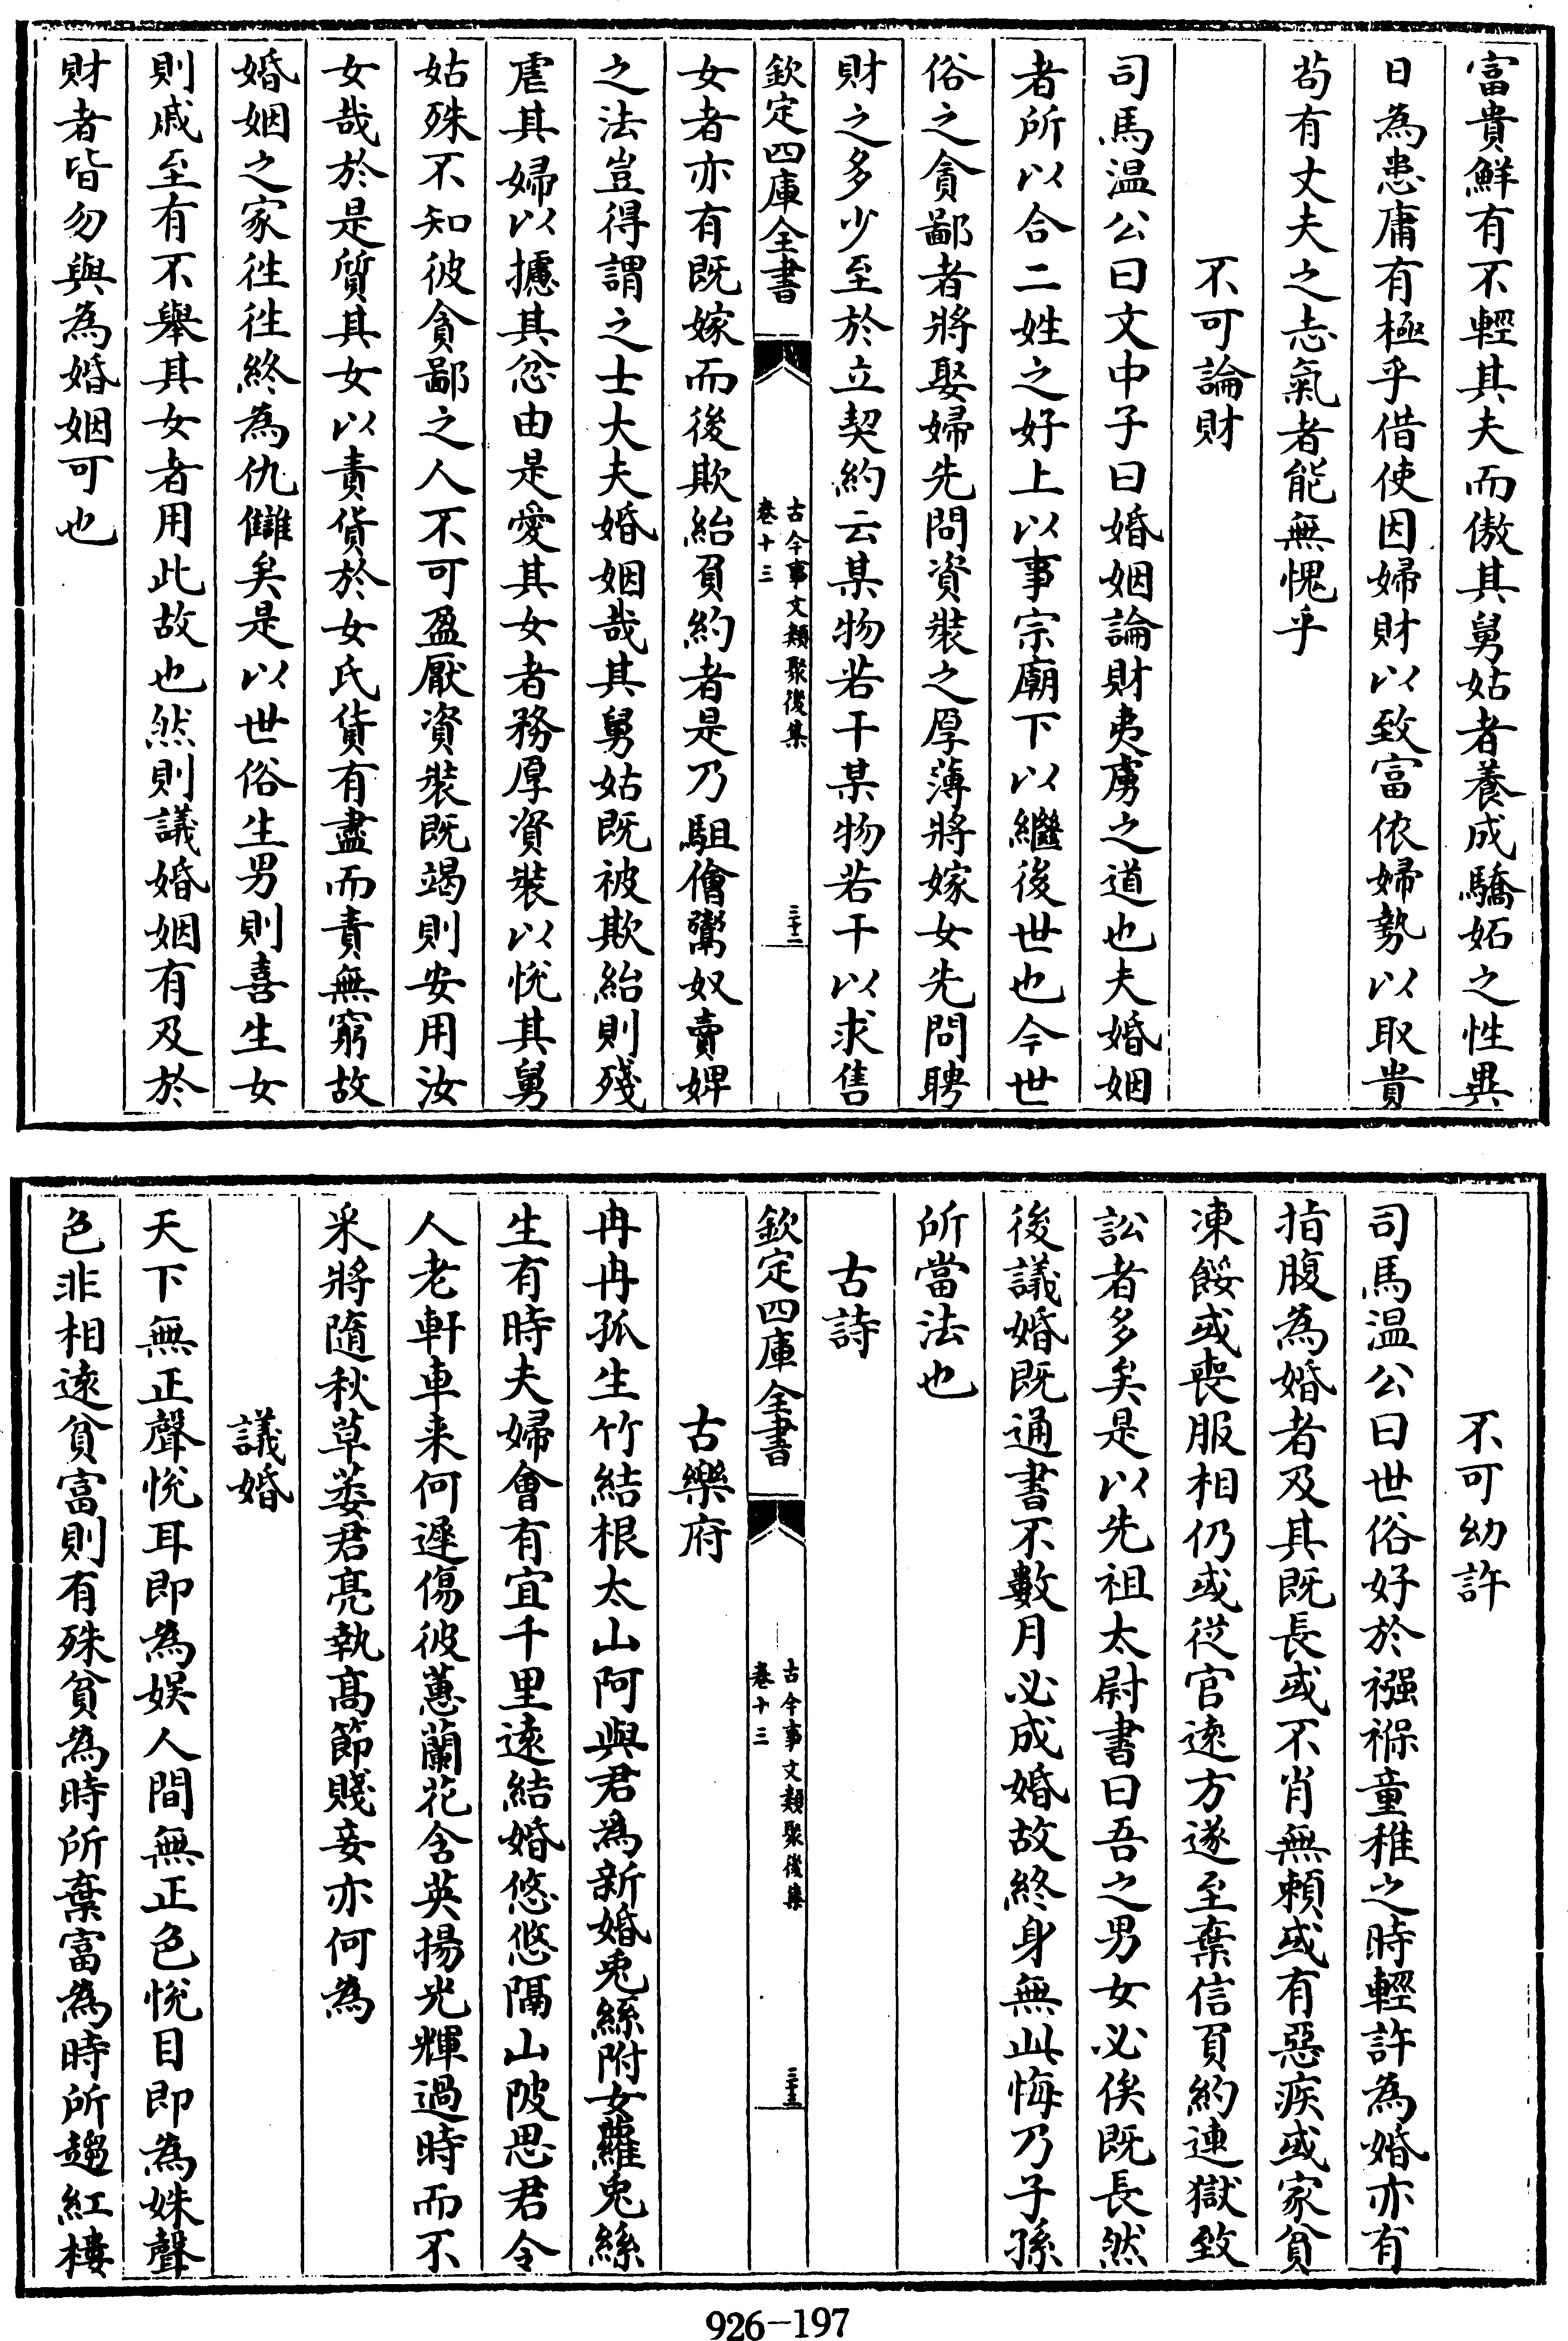 富貴鮮有不輕其夫而傲其舅姑者養成驕妬之性異
日為患庸有極乎借使因婦財以致富依婦勢以取貴
苟有丈夫之志氣者能無愧乎
不可論財
司馬温公曰文中子曰婚姻論財夷虜之道也夫婚姻
者所以合二姓之好上以事宗廟下以繼後世也今世
俗之貪鄙者將娶婦先問資裝之厚薄將嫁女先問聘
財之多少至於立契約云某物若干某物若干以求售
欽定四庫全書
古今事文類聚後集
卷十三
三十二
女者亦有既嫁而後欺紿負約者是乃駔儈鬻奴賣婢
之法豈得謂之士大夫婚姻哉其舅姑既被欺紿則殘
虐其婦以攄其忿由是愛其女者務厚資裝以悅其舅
姑殊不知彼貪鄙之人不可盈厭資裝既竭則安用汝
女哉於是質其女以責貨於女氏貨有盡而責無窮故
婚姻之家徃徃終為仇讎矣是以世俗生男則喜生女
則戚至有不舉其女者用此故也然則議婚姻有及於
財者皆勿與為婚姻可也
不可幼許
司馬温公曰世俗好於襁褓童稚之時輕許為婚亦有
指腹為婚者及其既長或不肖無賴或有惡疾或家貧
凍餒或喪服相仍或從官遠方遂至棄信負約連獄致
訟者多矣是以先祖太尉書曰吾之男女必俟既長然
後議婚既通書不數月必成婚故終身無此悔乃子孫
所當法也
古詩
欽定四庫全書
古今事文類聚後集
卷十三
三十三
古樂府
冉冉孤生竹結根太山阿與君為新婚兎絲附女蘿兎絲
生有時夫婦會有宜千里遠結婚悠悠隔山陂思君令
人老軒車来何遲傷彼蕙蘭花含英揚光輝過時而不
采將隨秋草萎君亮執高節賤妾亦何為
議婚
天下無正聲悅耳即為娱人間無正色悅目即為姝聲
色非相遠貧富則有殊貧為時所棄富為時所趨紅樓
926-197